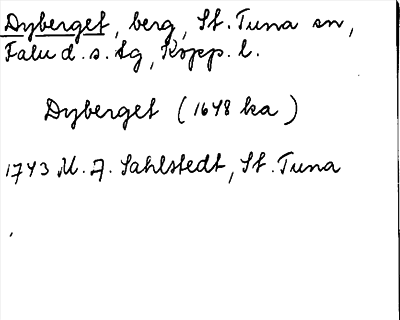 Dyberget, berg, St. Tuna sn,
Falu d. s. tg, Kopp. l.
Dyberget (1648 ka)
1743 M. A. Sahlstedt, St. Tuna